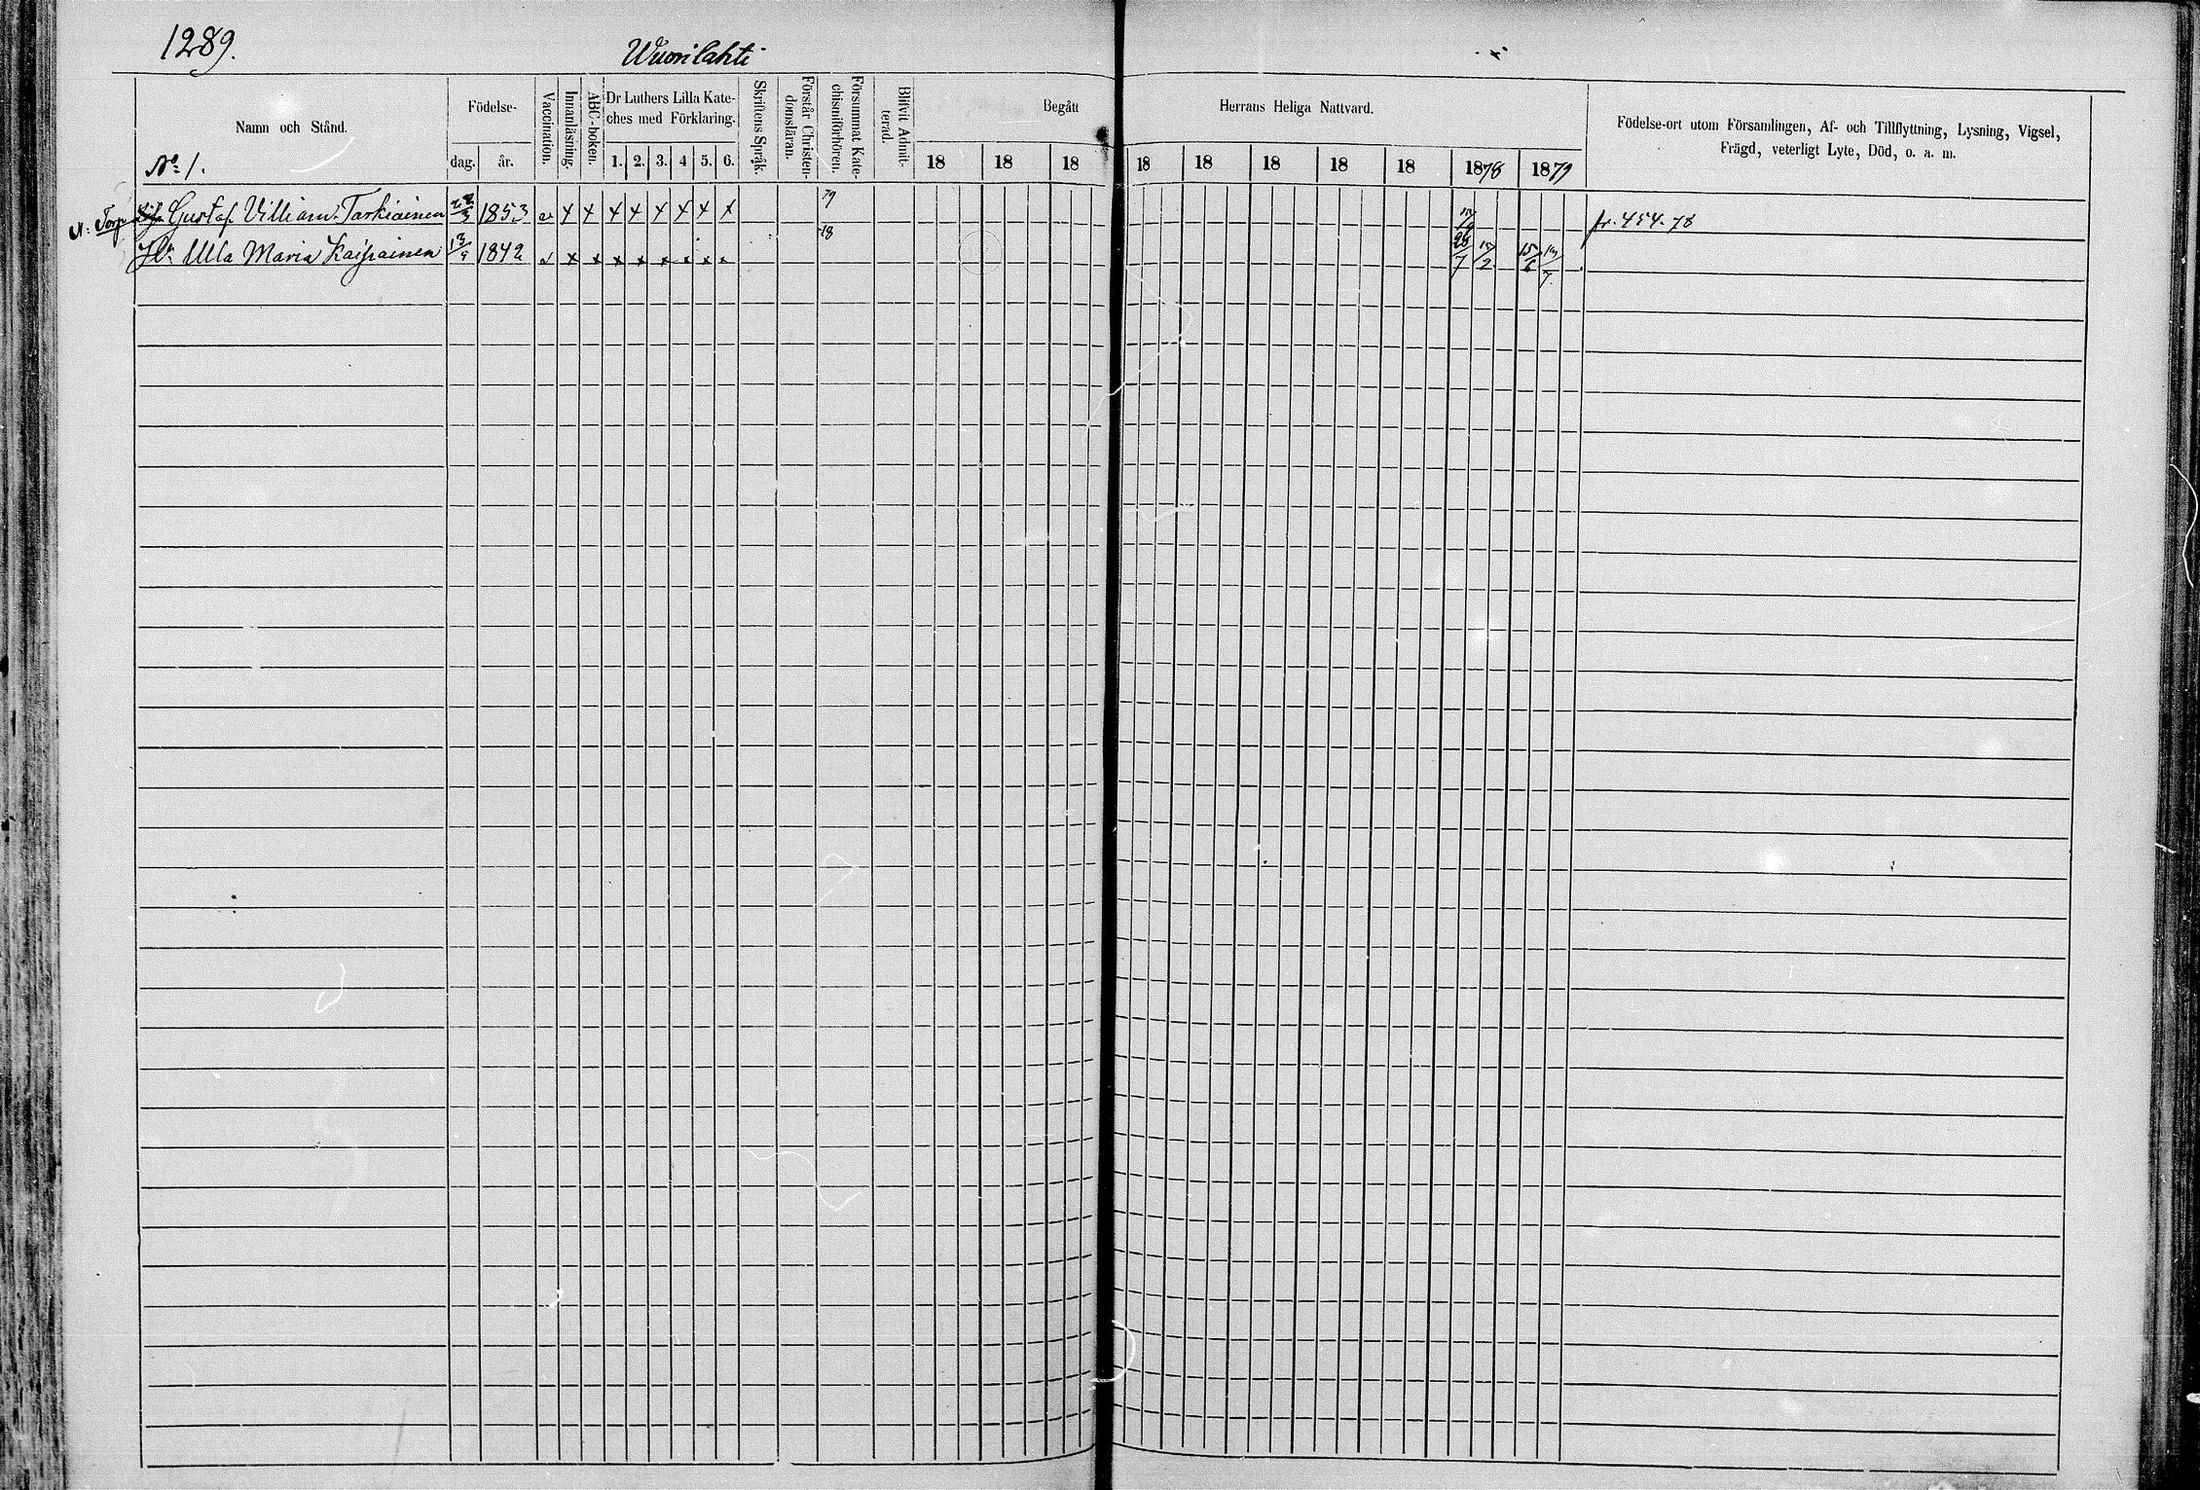 1289.
Wuorilahti
Namn och Stånd.
Födelse-
dag. år.
Vaccination.
Innanläsning.
ABC-boken.
Dr Luthers Lilla Kate-
ches med Förklaring.
1. 2. 3. 4 5. 6.
Skriftens Språk.
Förstår Christen-
domsläran.
Försummat Kate-
chismiförhören.
Blifvit Admit-
terad.
Begått Herrans Heliga Nattvard.
18 18 18 18 18 18 18 18 1878 1879
Födelse-ort utom Församlingen, Af- och Tillflyttning, Lysning, Vigsel,
Frägd, veterligt Lyte, Död, o. a. m.
No. 1.
Torp Gustaf Villiam Tarkiainen 22/3 1853 v x x x x x x x x 79 fr. 454. 78
Hu Ulla Maria 13/9 1842 v x x x x x x x x 78 28/7 15/6